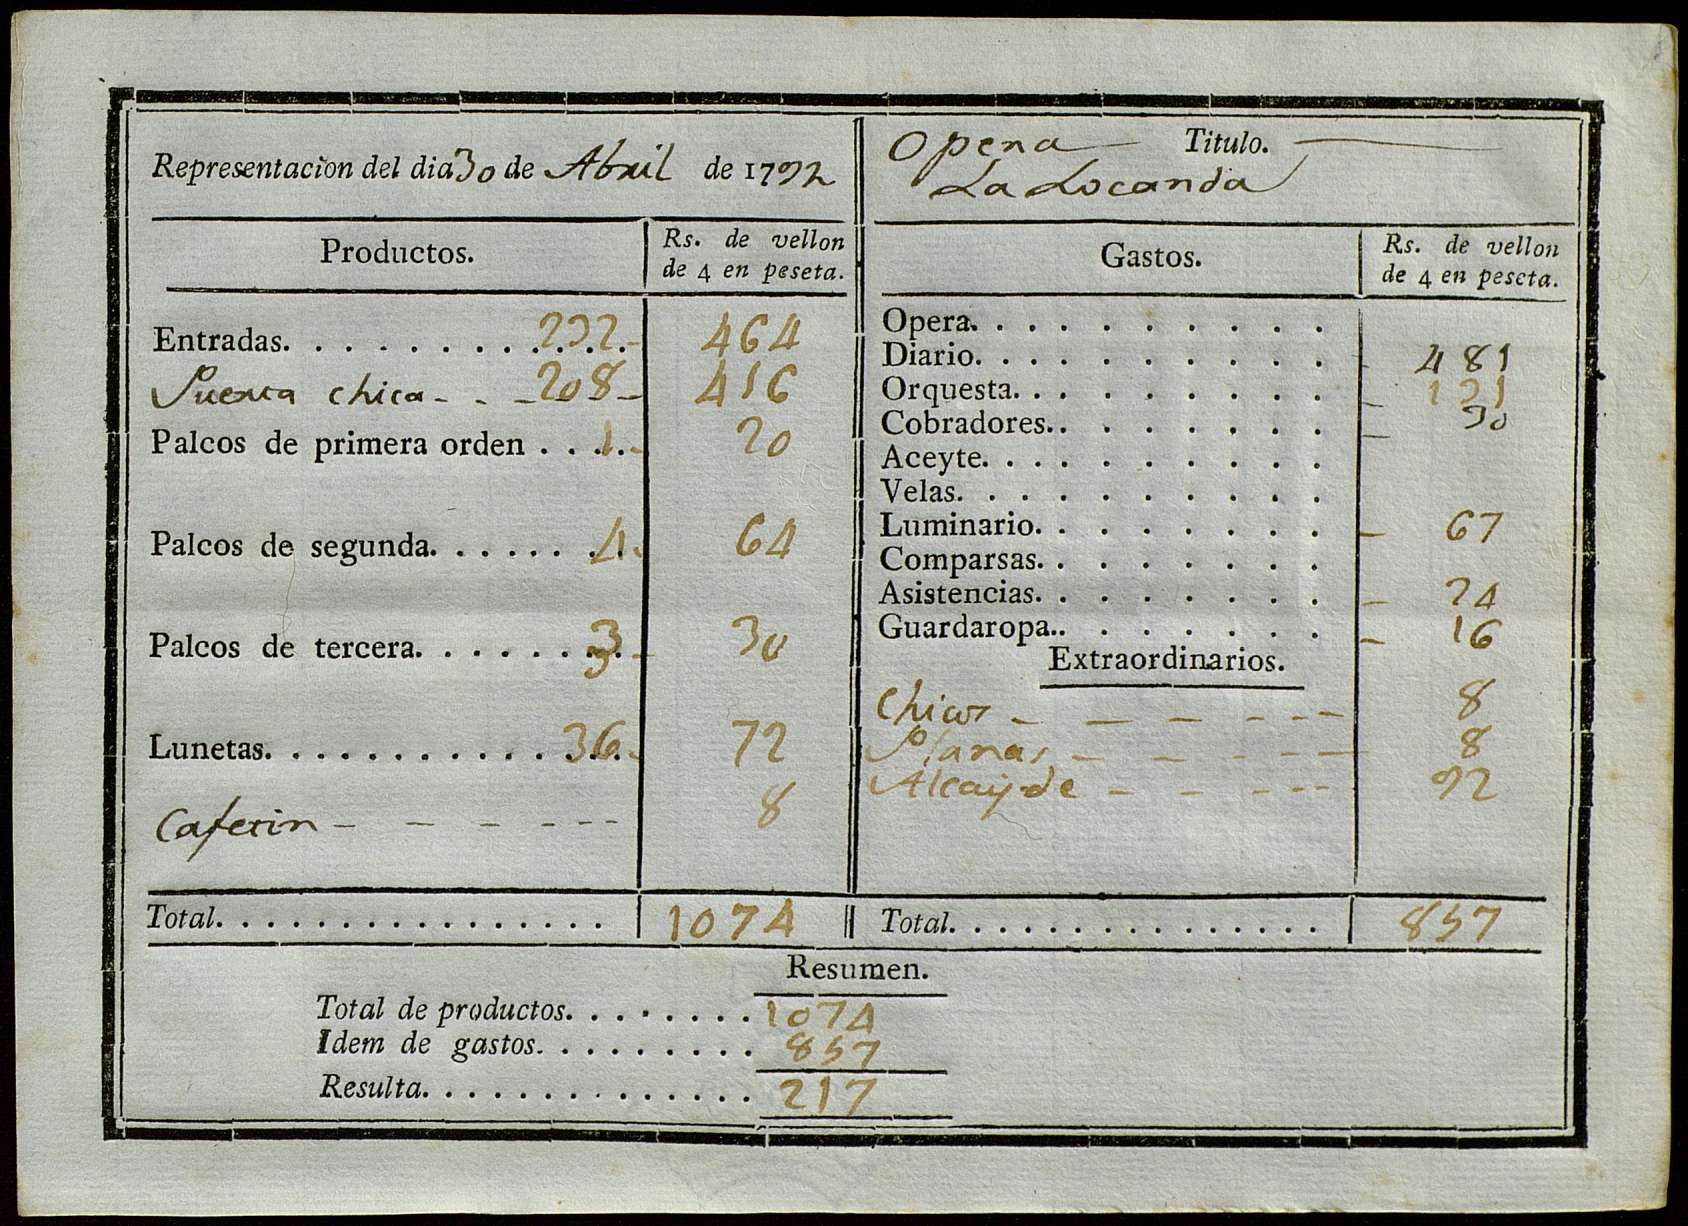 Representacion del dia 30 de Abril de 1792
Opera Titulo.
La Locanda
Productos. Rs. de vellon
de 4 en peseta.
Entradas. . . . . . . . . . . . . 232 - 464
Puerta chica - - - 208 - 416
Palcos de primera orden . . . . 1 - 20
Palcos de segunda. . . . . . . . 4 - 64
Palcos de tercera. . . . . . . . 3 - 30
Lunetas. . . . . . . . . . . . . 36 - 72
Cafetin - - - - - - 8
Total. . . . . . . . . . . . . . . . 1074
Gastos. Rs. de vellon
de 4 en peseta.
Opera. . . . . . . . . .
Diario. . . . . . . . . . - 481
Orquesta. . . . . . . . . - 131
Cobradores. . . . . . . . - 30
Aceyte. . . . . . . . . .
Velas. . . . . . . . . .
Luminario. . . . . . . . - 67
Comparsas. . . . . . . .
Asistencias. . . . . . . . - 24
Guardaropa. . . . . . . . - 16
Extraordinarios.
Chicos - - - - - - 8
Planas - - - - - - 8
Alcayde - - - - - 92
Total. . . . . . . . . . . . . . . . 857
Resumen.
Total de productos. . . . . . . . 1074
Idem de gastos. . . . . . . . . . 857
Resulta. . . . . . . . . . . . . . 217